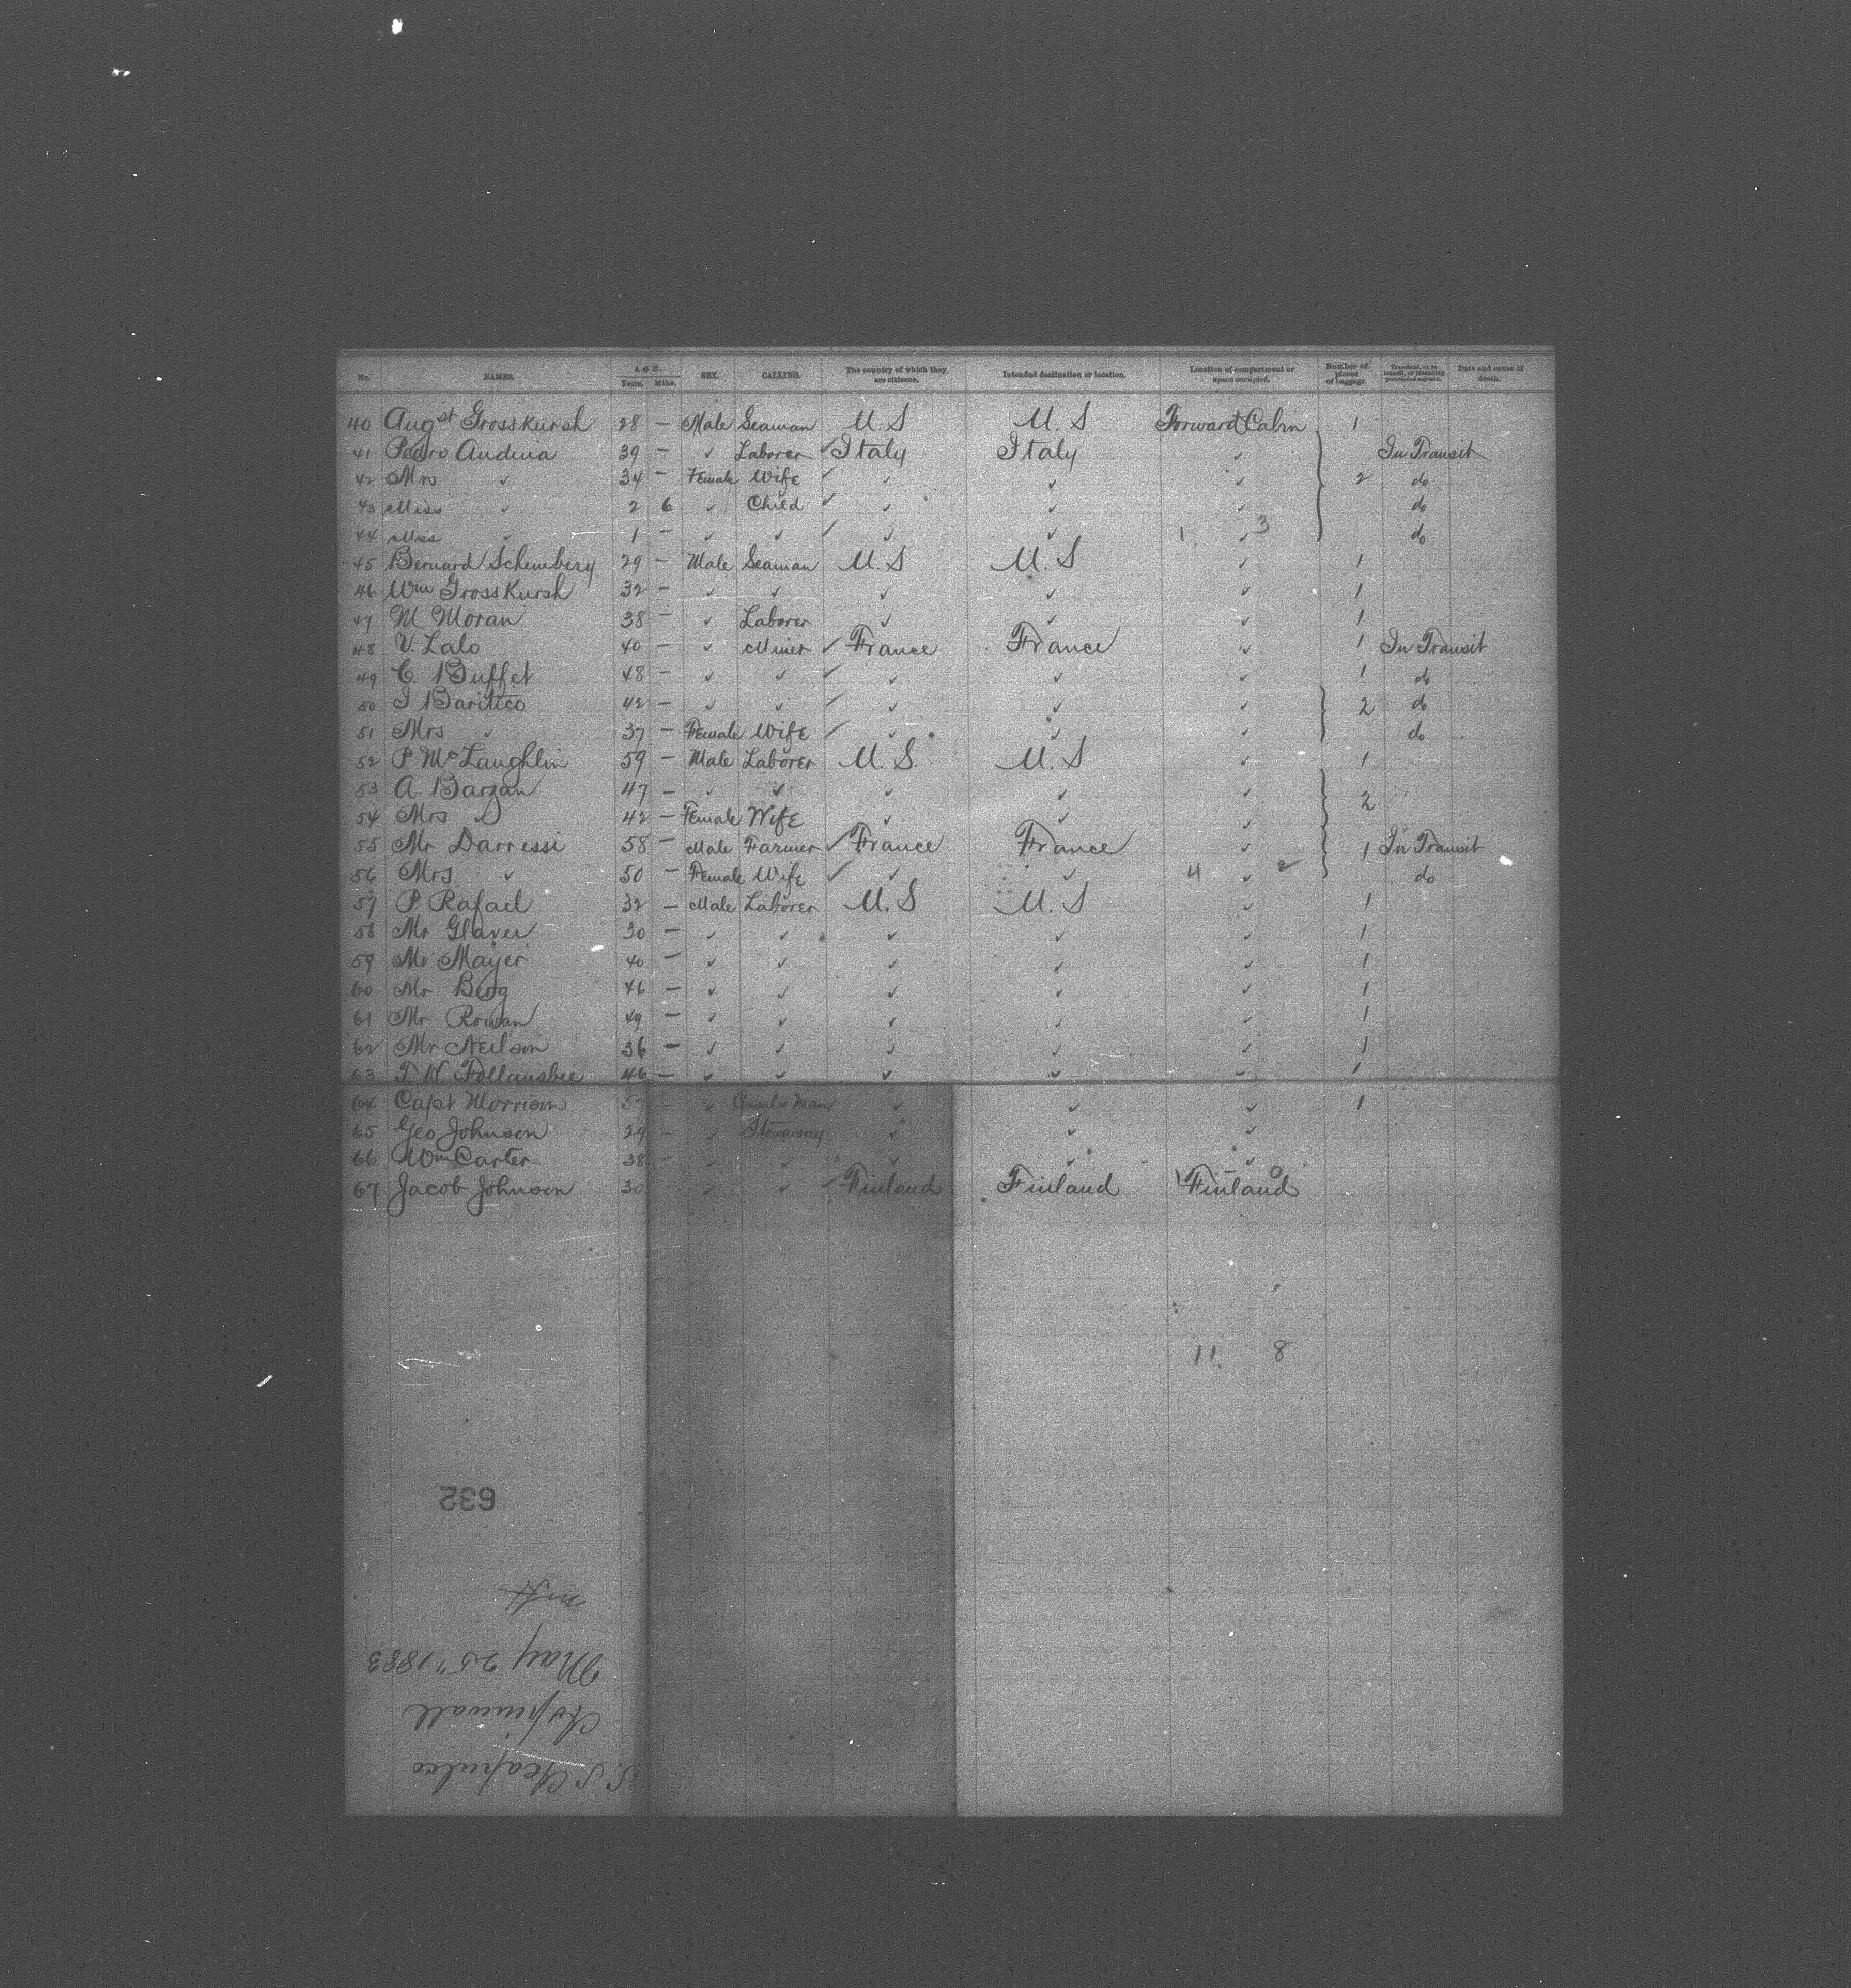 No. NAMES. AGE. Years. Mths. SEX. CALLING. The country of which they are citizens. Intended destination or location. Location of compartment or space occupied. Number of pieces of baggage. Transient, or in transit, or intending protracted sojourn. Date and cause of death.
40 Augst Grosskursh 28 – Male Seaman U.S U.S Forward Cabin 1
41 Pedro Audina 39 – ✓ Laborer ✓ Italy Italy ✓ In Transit
42 Mrs ✓ 34 – Female Wife ✓ ✓ ✓ ✓ 2 do
43 Miss ✓ 2 6 ✓ Child ✓ ✓ ✓ ✓ do
44 Miss ✓ 1 – ✓ ✓ ✓ ✓ ✓ 1 ✓ 3 do
45 Bernard Schembery 29 – Male Seaman U.S U.S ✓ 1
46 Wm Grosskursh 32 – ✓ ✓ ✓ ✓ ✓ 1
47 M Moran 38 – ✓ Laborer ✓ ✓ ✓ 1
48 V. Lalo 40 – ✓ Miner ✓ France France ✓ 1 In Transit
49 C. Buffet 48 – ✓ ✓ ✓ ✓ ✓ ✓ 1 do
50 I Baritico 42 – ✓ ✓ ✓ ✓ ✓ ✓ 2 do
51 Mrs ✓ 37 – Female Wife ✓ ✓ ✓ ✓ do
52 P McLaughlin 59 – Male Laborer U.S. U.S ✓ 1
53 A. Barzan 47 – ✓ ✓ ✓ ✓ ✓ 2
54 Mrs ✓ 42 – Female Wife ✓ ✓ ✓
55 Mr Darressi 58 – Male Farmer ✓ France France ✓ 1 In Transit
56 Mrs ✓ 50 – Female Wife ✓ ✓ ✓ 4 ✓ 2 do
57 P. Rafael 32 – Male Laborer U.S U.S ✓ 1
58 Mr Glaver 30 – ✓ ✓ ✓ ✓ ✓ 1
59 Mr Mayer 40 – ✓ ✓ ✓ ✓ ✓ 1
60 Mr Berg 46 – ✓ ✓ ✓ ✓ ✓ 1
61 Mr Rowan 49 – ✓ ✓ ✓ ✓ ✓ 1
62 Mr Neilson 36 – ✓ ✓ ✓ ✓ ✓ 1
63 T. W. Follansbee 46 – ✓ ✓ ✓ ✓ ✓ 1
64 Capt Morrison – ✓ Consuls Man ✓ ✓ ✓ 1
65 Geo Johnson 29 – ✓ Stowaway ✓ ✓ ✓
66 Wm Carter 38 – ✓ ✓ ✓ ✓ ✓
67 Jacob Johnson 30 – ✓ ✓ ✓ Finland Finland 1 Finland 0
11 8
632
May 25" 1883
Aspinwall
S.S Acapulco